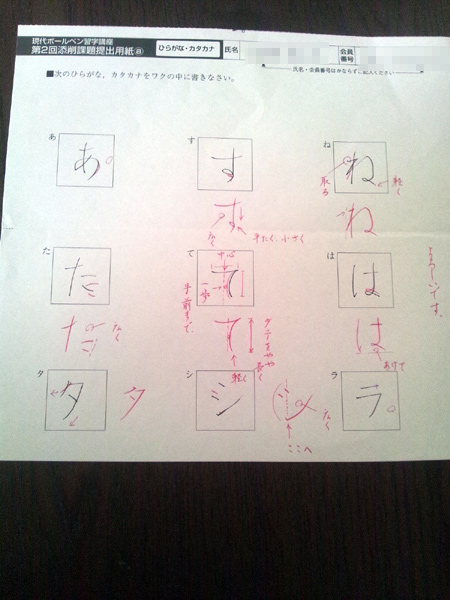 現代ボールペン習字講座
第2回添削課題提出用紙
ひらがな・カタカナ
氏名
会員番号
氏名・会員番号はかならずご記入ください
■次のひらがな、カタカナをワクの中に書きなさい。
あ す ね
あ す ね
軽く
す ね
平たく 小さく
た て は
た て は
中心
手前まで
た て は
タテをやや長く
軽く
あけて
タ シ ラ
タ シ ラ
タ
ここへ